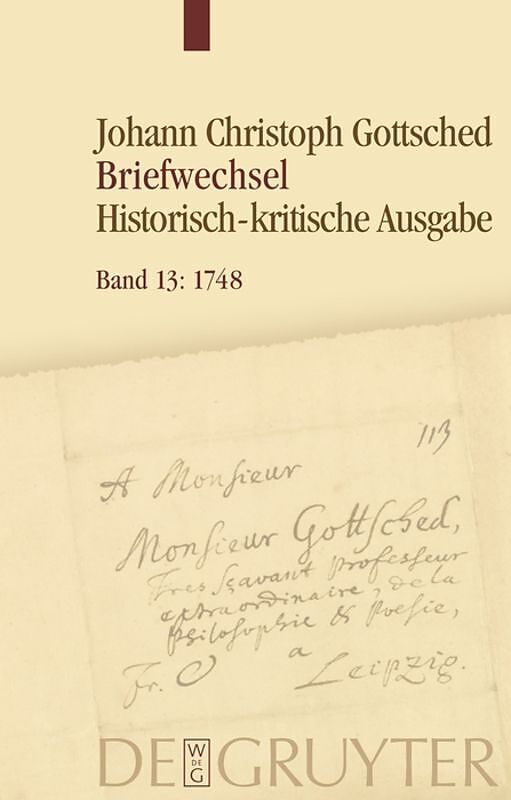 Johann Christoph Gottsched
Briefwechsel
Historisch-kritische Ausgabe
Band 13: 1748
113
A Monsieur
Monsieur Gottsched,
Tres sçavant Professeur
extraordinaire, de la
Philosophie & Poësie,
a
Fr. Leipzig.
DE GRUYTER
W
DE
G